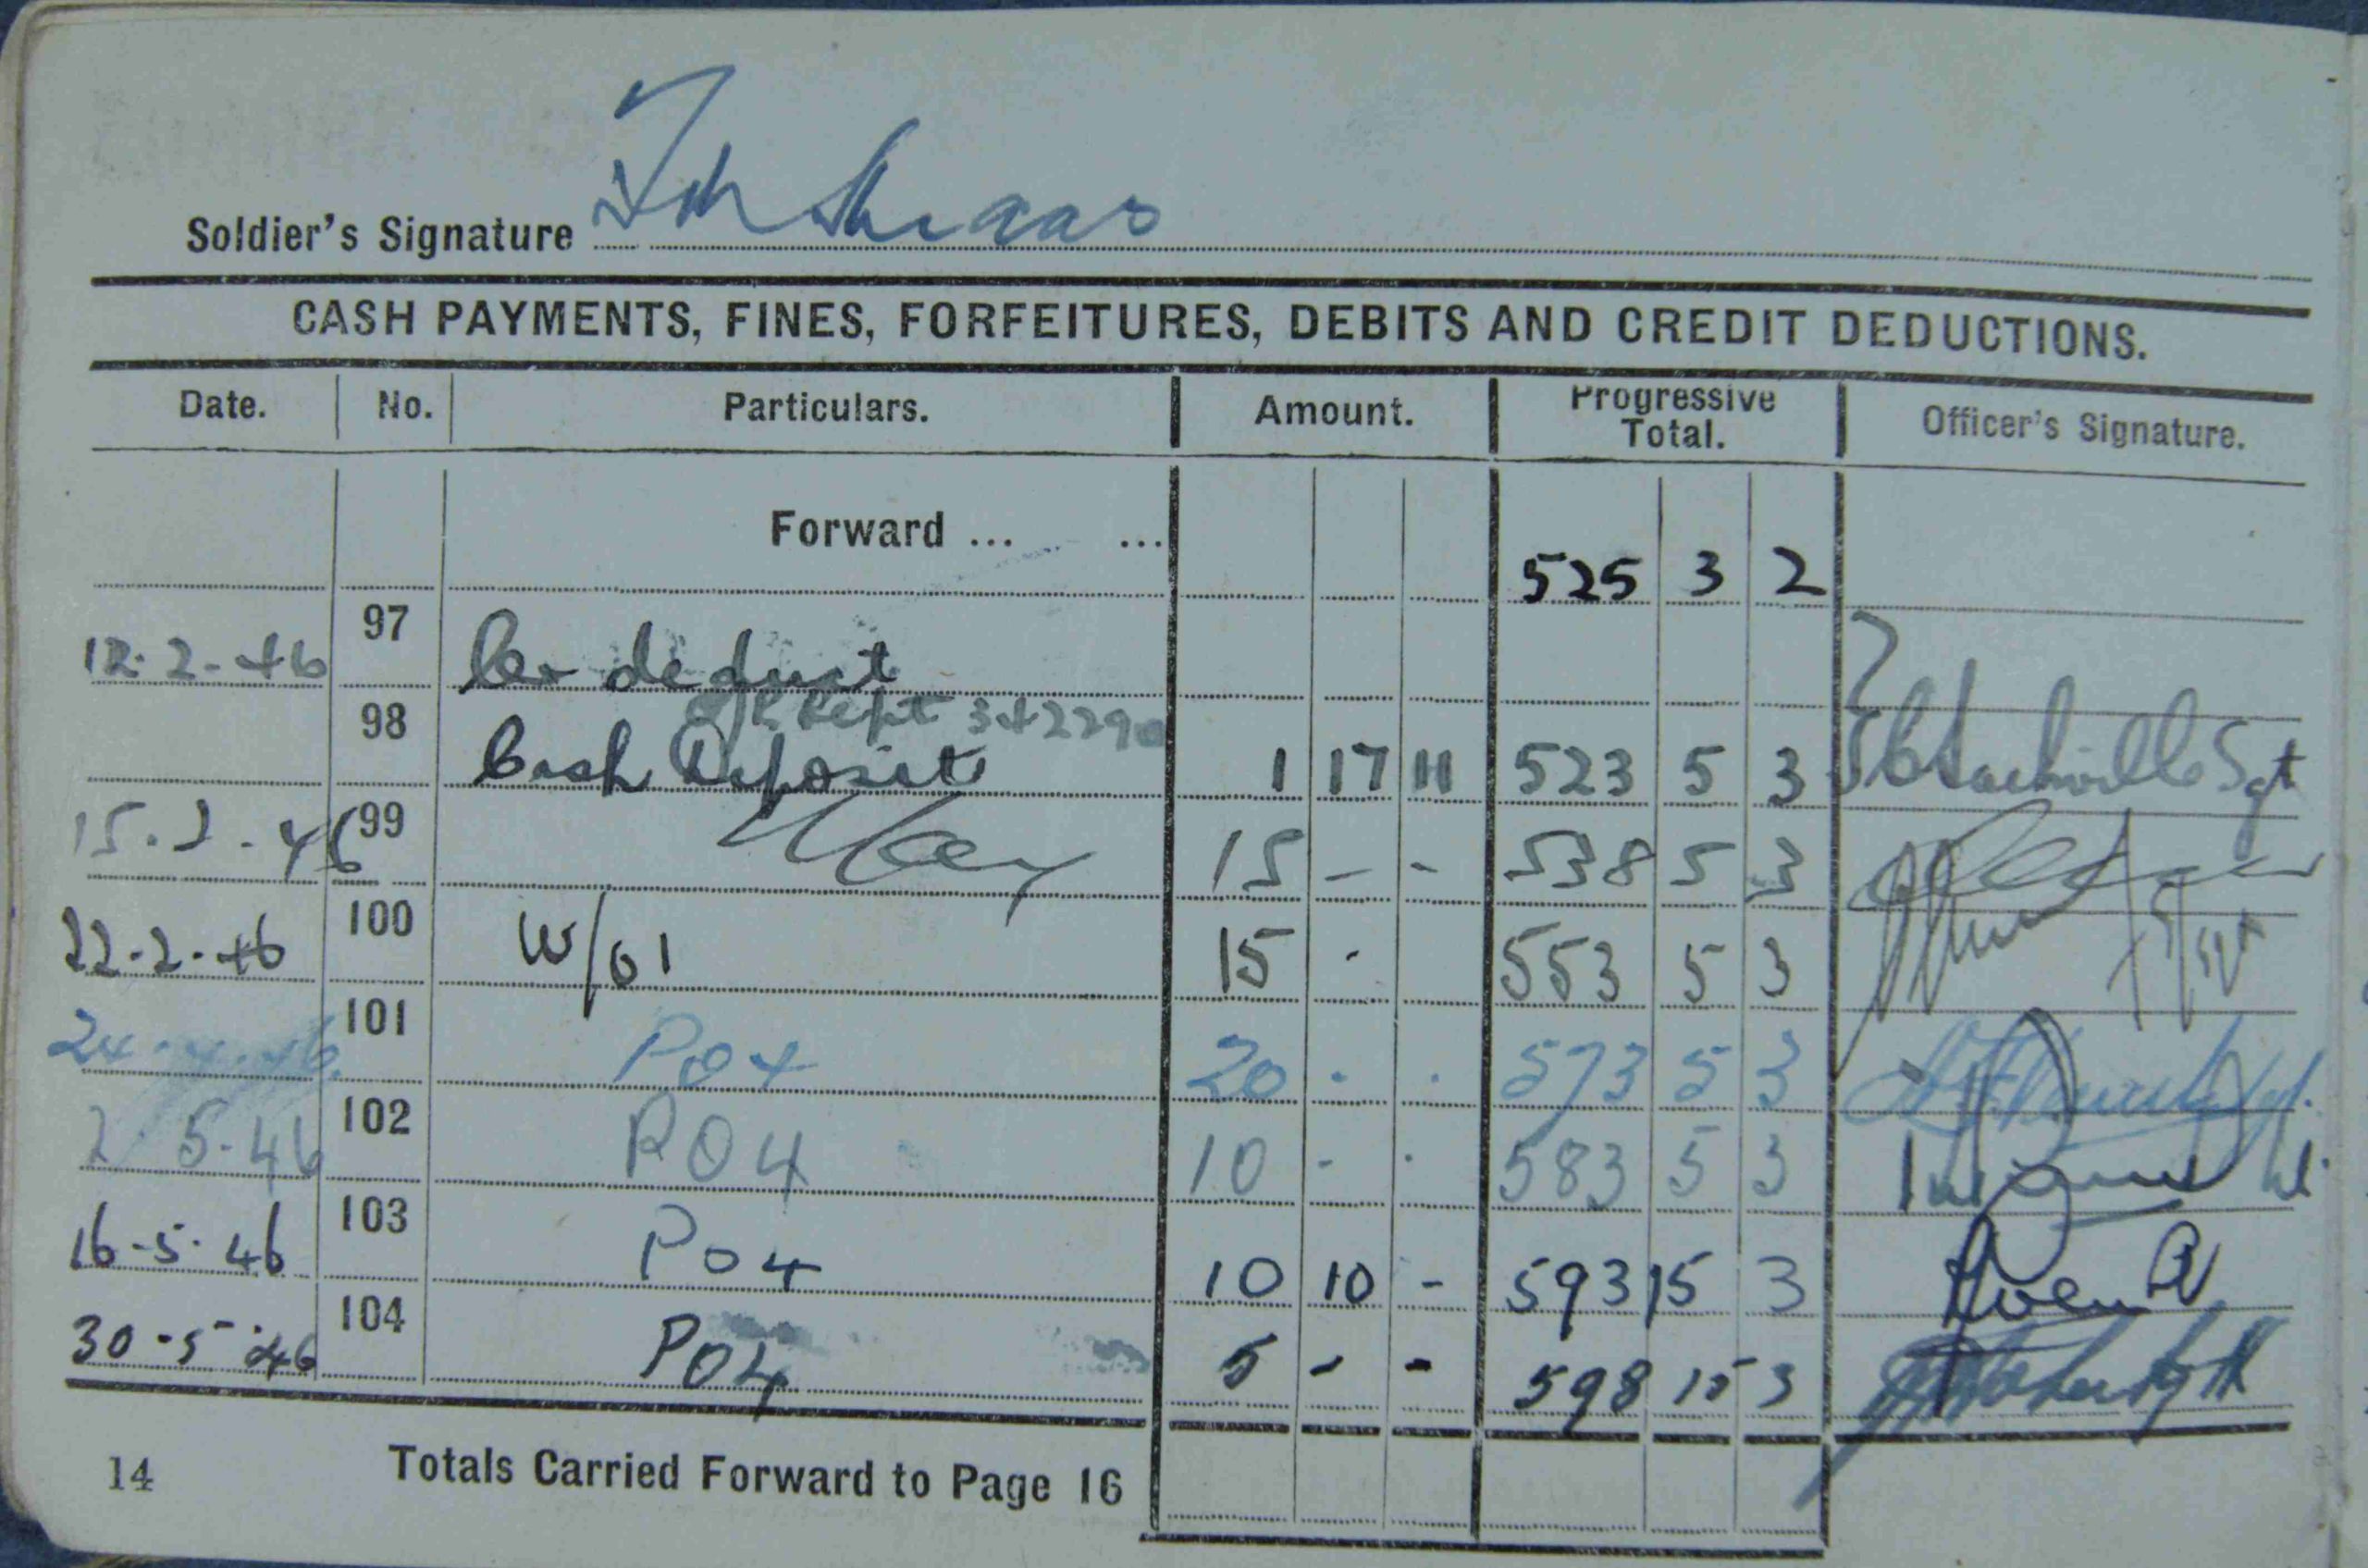 Soldier's Signature
CASH PAYMENTS, FINES, FORFEITURES, DEBITS AND CREDIT DEDUCTIONS.
Date. No. Particulars. Amount. Progressive Total. Officer's Signature.
Forward ... ... 525 3 2
12.2.46 97 Cr deduct
98 Cash Deposit 1 17 11 523 5 3 Sgt
15.2.46 99 15 - - 538 5 3
22.2.46 100 W/O1 15 - 553 5 3
24.4.46. 101 P04 20 - - 573 5 3
2.5.46 102 P04 10 - - 583 5 3
16.5.46 103 P04 10 10 - 593 15 3
30.5.46 104 P04 5 - - 598 15 3
14 Totals Carried Forward to Page 16